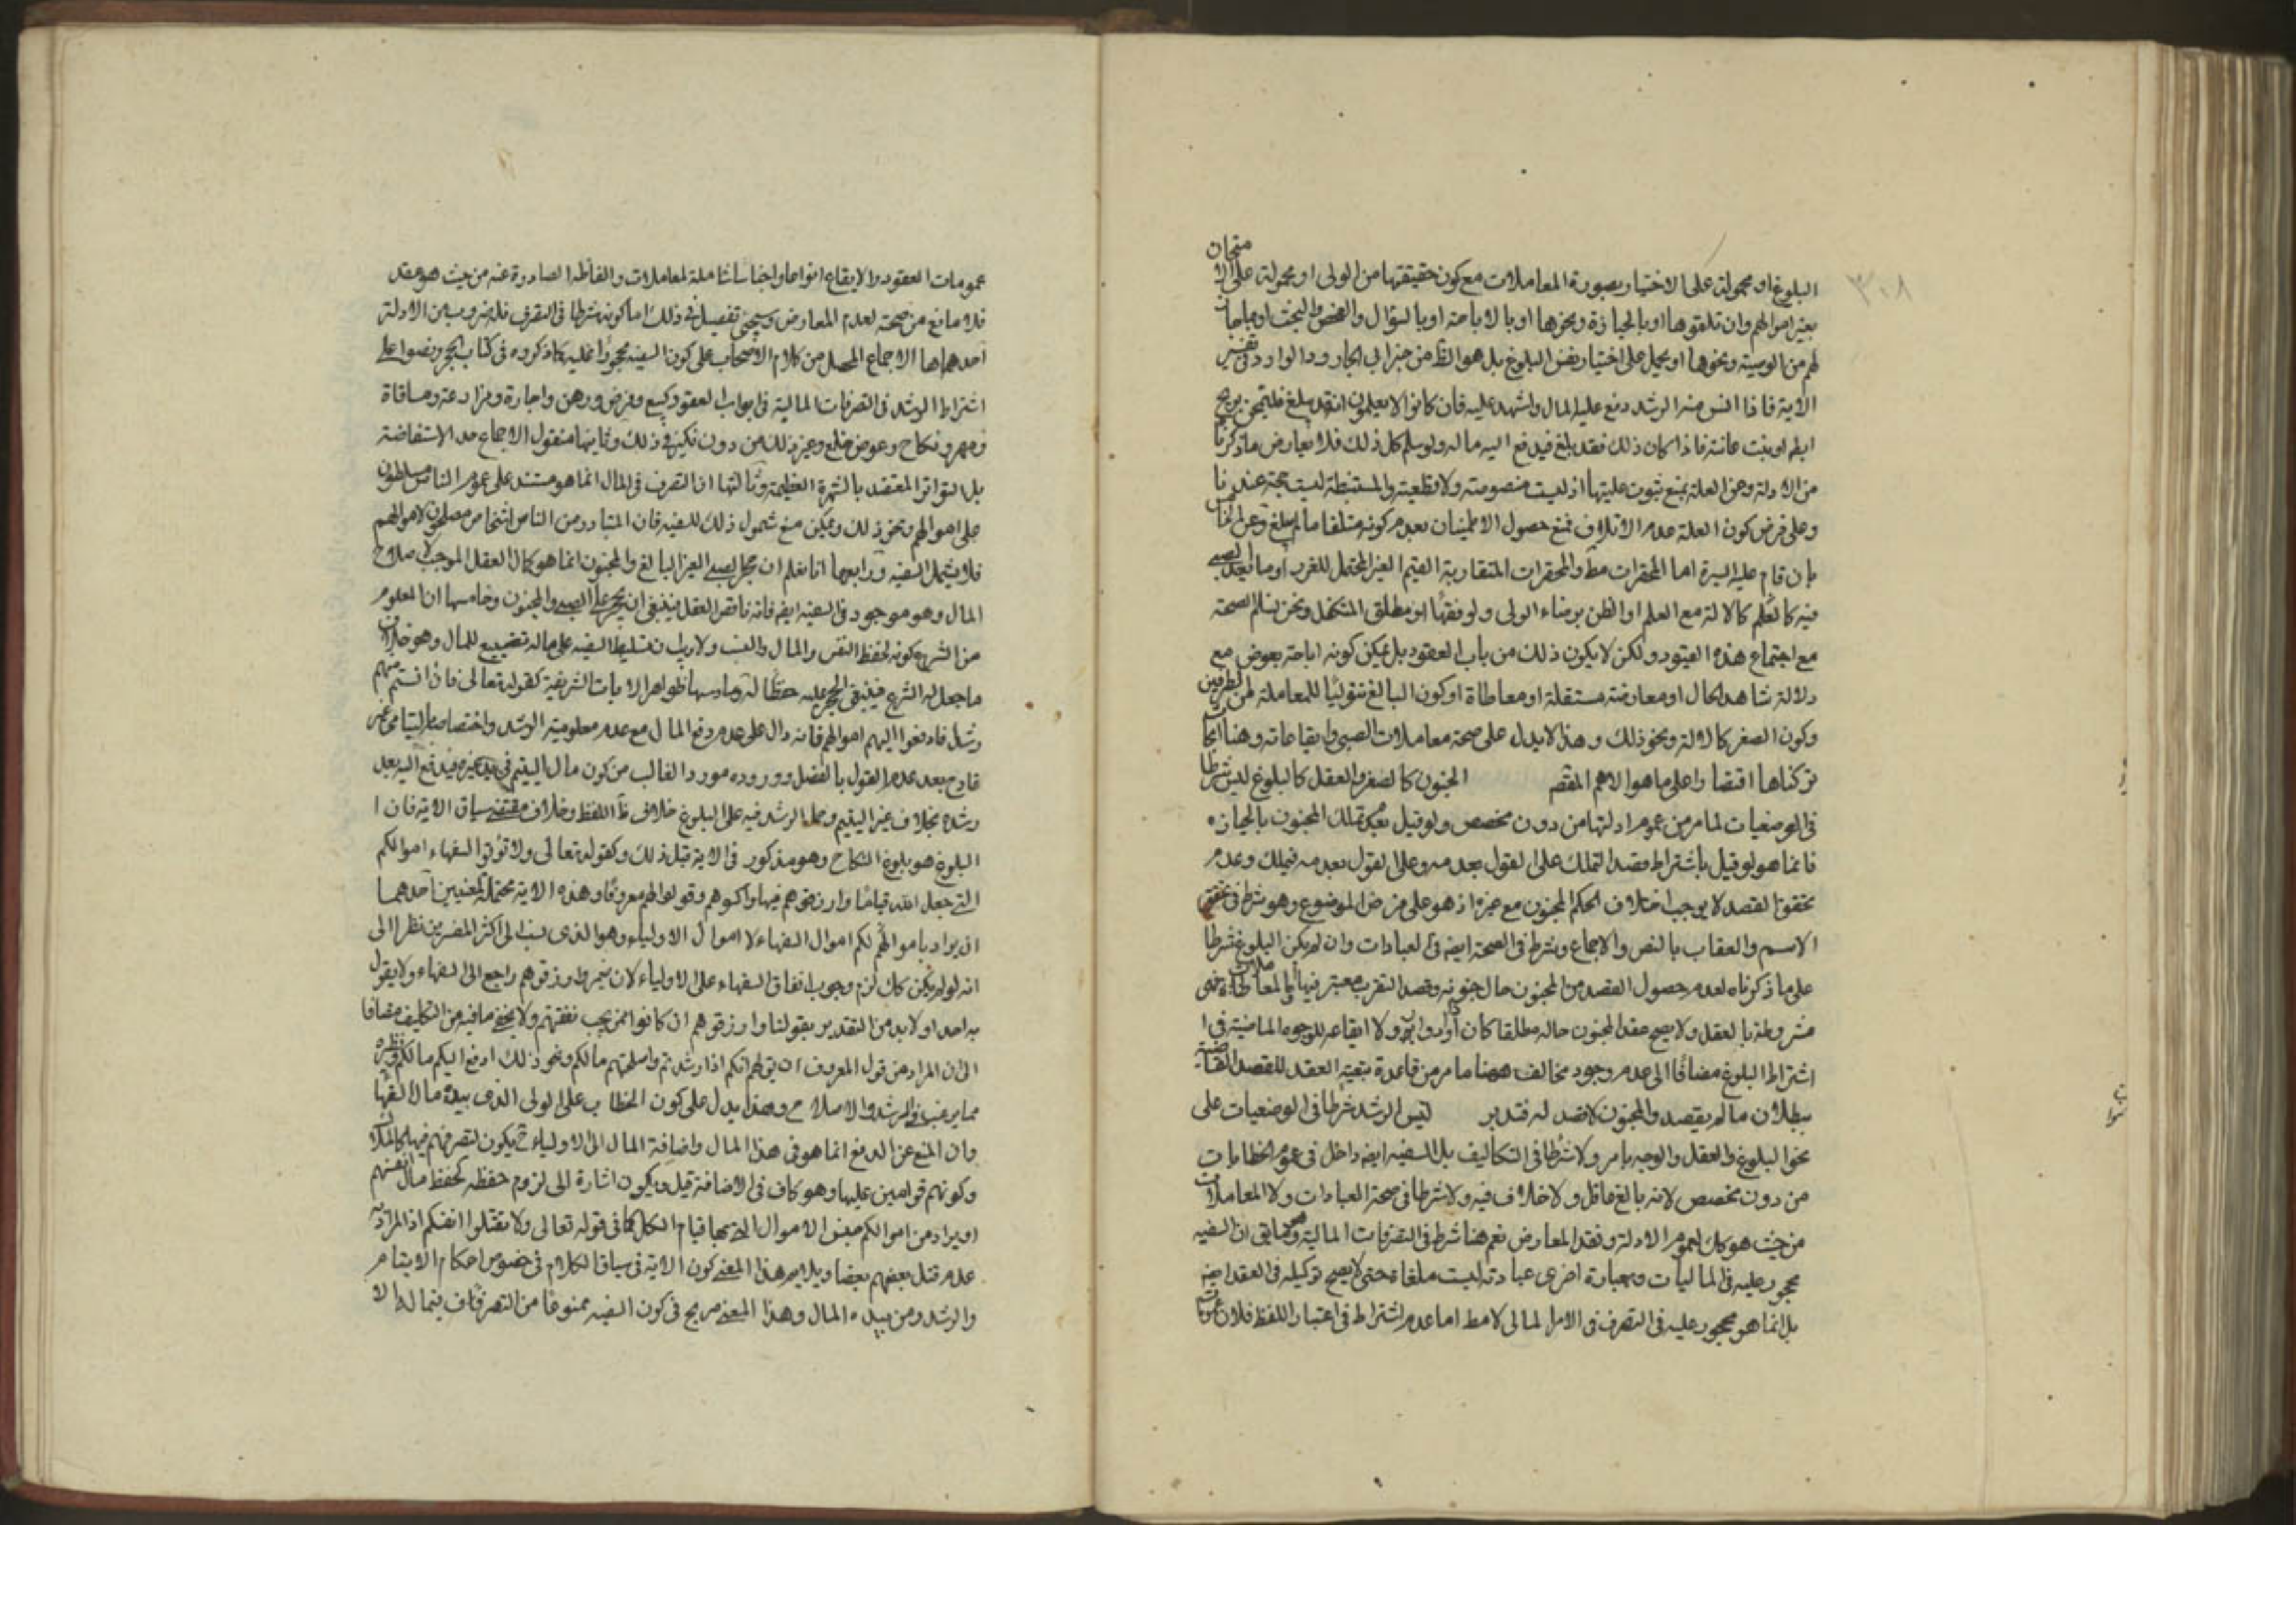 ٣٠٨
البلوغ او محمولة على الاختيار بصورة المعاملات مع كون حقيقتها من الولى او محمولة على الامتحان
بغير اموالهم وان تلقوها او بالحيازة ونحوها او بالاباحة او بالسؤال والفحص والبحث او مباحات
لهم من الوصية ونحوها او يحمل على اختيار نفس البلوغ بل هو الظ من خبر ابى الجارود الوارد فى تفسير
الاية فاذا انس منه الرشد دفع عليه المال واشهد عليه فان كانوا لا يعلمون انه قد بلغ فليمتحن بريح
ابطه او نبت عانته فاذا كان ذلك فقد بلغ فيدفع اليه ماله ولو سلم كل ذلك فلا يعارض ما ذكرنا
من الادلة وعن العلة بمنع ثبوت عليتها اذ ليست منصوصة ولا قطعية والمستنبطة ليست حجة عندنا
وعلى فرض كون العلة عدم الاتلاف نمنع حصول الاطمينان بعدم كونه متلفا ما لم يبلغ وعن
بان قام عليه السيرة اما المحقرات مط والمحقرات المتقاربة القيم الغير المحتمل للغرر او ما يعد الصبى
فيه كالعلم كالالة مع العلم او الظن برضاء الولى ولو فقها او مطلق المتكفل ونحن نسلم الصحة
مع اجتماع هذه القيود ولكن لا يكون ذلك من باب العقود بل يمكن كونه اباحة بعوض مع
دلالة شاهد الحال او معاوضة مستقلة او معاطاة او كون البالغ متوليا للمعاملة لمن الطرفين
وكون الصغر كالالة ونحو ذلك وهذا لا يدل على صحة معاملات الصبى وايقاعاته وهنا ابحاث
تركناها اقتصارا على ما هو الاهم المقصد الجنون كالصغر والعقل كالبلوغ ليس شرطا
فى الوضعيات لما مر من عموم ادلتها من دون مخصص ولو قيل بعدم تملك المجنون بالحيازه
فانما هو لو قيل باشتراط قصد التملك على القول بعدمه وعلى القول بعدمه فيملك وعدم
تحقق القصد لا يوجب اختلاف الحكم المجنون مع غيره اذ هو على فرض الموضوع وهو شرط فى تحقق
الاسم والعقاب بالنص والاجماع وشرط فى الصحة ايضه فى العبادات وان لم يكن البلوغ شرطا
على ما ذكرناه لعدم حصول القصد من المجنون حال جنونه وقصد التقرب معتبر فيها واما المعاملات فهى
مشروطة بالعقل ولا يصح عقد المجنون حاله مطلقا كان ولا ايقاعه للوجوه الماضية فى ا
اشتراط البلوغ مضافا الى عدم وجود مخالف ههنا ما مر من قاعدة تبعية العقد للقصد القاضية
ببطلان ما لم يقصد والمجنون لا قصد له فتدبر ليس الرشد شرطا فى الوضعيات على
نحو البلوغ والعقل والوجه ما مر ولا شرطا فى التكاليف بل السفيه ايضه داخل فى عموم الخطابات
من دون مخصص لانه بالغ عاقل ولا خلاف فيه ولا شرطا فى صحة العبادات ولا المعاملات
من حيث هو كك لعموم الادلة وفقد المعارض نعم هنا شرط فى التصرفات المالية ان السفيه
محجور عليه فى الماليات وبعبارة اخرى عبارته ليست ملغاة حتى لا يصح توكيله فى العقد ايضه
بل انما هو محجور عليه فى التصرف فى الامر المالى لا مط اما عدم اشتراط فى اعتبار اللفظ فلان
عمومات العقود والايقاع انواعا واجناسا شاملة لمعاملات والفاظه الصادرة عنه من حيث هو عقد
فلا مانع من صحته لعدم المعارض وسيجئ تفصيل فى ذلك اما كونه شرطا فى التصرف فله ضروب من الادلة
احدهما الاجماع المحصل من كلام الاصحاب على كون السفيه محجورا عليه كما ذكروه فى كتاب الحجر ونصوا على
اشتراط الرشد فى التصرفات المالية فى ابواب العقود كبيع وقرض ورهن واجارة ومزارعة ومساقاة
ومهر ونكاح وعوض خلع وغير ذلك من دون نكير فى ذلك وثانيها منقول الاجماع حد الاستفاضة
بل التواتر المعتضد بالشهرة العظيمة وثالثها ان التصرف فى المال انما هو مستند على عموم الناس مسلطون
على اموالهم ونحو ذلك ويمكن منع شمول ذلك للسفيه فان المتبادر من الناس اشخاص مصلحون لاموالهم
فلا يشمل السفيه ورابعها انا نعلم ان حجر الصبى الغير البالغ والمجنون انما هو كمال العقل الموجب لاصلاح
المال وهو موجود فى السفيه ايضه فانه ناقص العقل فينبغى ان يحجر على الصبى والمجنون وخامسها ان المعلوم
من الشرع كونه لحفظ النفس والمال والنسب ولا ريب ان تسليط السفيه على ماله تضييع للمال وهو خلاف
ما جعل له الشرع فينبغى الحجر عليه حفظا له وسادسها ظواهر الايات الشريفة كقوله تعالى فان انستم منهم
رشدا فادفعوا اليهم اموالهم فانه دال على عدم دفع المال مع عدم معلومية الرشد واختصاصها باليتامى غير
قادح بعد عدم القول بالفصل ووروده مورد الغالب من كون مال اليتيم فى يد غيره فيدفع اليه بعد
رشده بخلاف غير اليتيم وحمل الرشد فيه على البلوغ خلاف ظ اللفظ وخلاف مقتضى سياق الاية فان ا
البلوغ هو بلوغ النكاح وهو مذكور فى الاية قبل ذلك وكقوله تعالى ولا تؤتوا السفهاء اموالكم
التى جعل الله قياما وارزقوهم فيها واكسوهم وقولوا لهم معروفا وهذه الاية محتملة لمعنيين احدهما
ان يراد باموالهم لكم اموال السفهاء لا اموال الاولياء وهو الذى نسب الى اكثر المفسرين نظرا الى
انه لو لم يكن كك لزم وجوب انفاق السفهاء على الاولياء لان ضمير وارزقوهم راجع الى السفهاء ولا يقول
به احد او لابد من التقدير بقولنا وارزقوهم ان كانوا ممن يجب نفقتهم ولا يخفى ما فيه من التكليف مضافا
الى ان المراد من قول المعروف ان يق لهم انكم اذا رشدتم واصلحتهم مالكم ونحو ذلك ادفع اليكم مالكم وغيره
مما يرغب فى الرشد والاصلاح وهذا يدل على كون الخطاب على الولى الذى بيده مال السفهاء
وان المنع عن الدفع انما هو فى هذا المال واضافة المال الى الاولياء ح يكون لتصرفهم فيها كالملاك
وكونهم قوامين عليها وهو كاف فى الاضافة قيل ويكون اشارة الى لزوم حفظه كحفظ مال انفسهم
او يراد من اموالكم جنس الاموال التى بها قيام الكل كما فى قوله تعالى ولا تقتلوا انفسكم اذ المراد به
عدم قتل بعضهم بعضا ويلايم هذا المعنى كون الاية فى سياق الكلام فى خصوص احكام الايتام
والرشد ومن بيده المال وهذا المعنى صريح فى كون السفيه ممنوعا من التصرفات فيما له الا